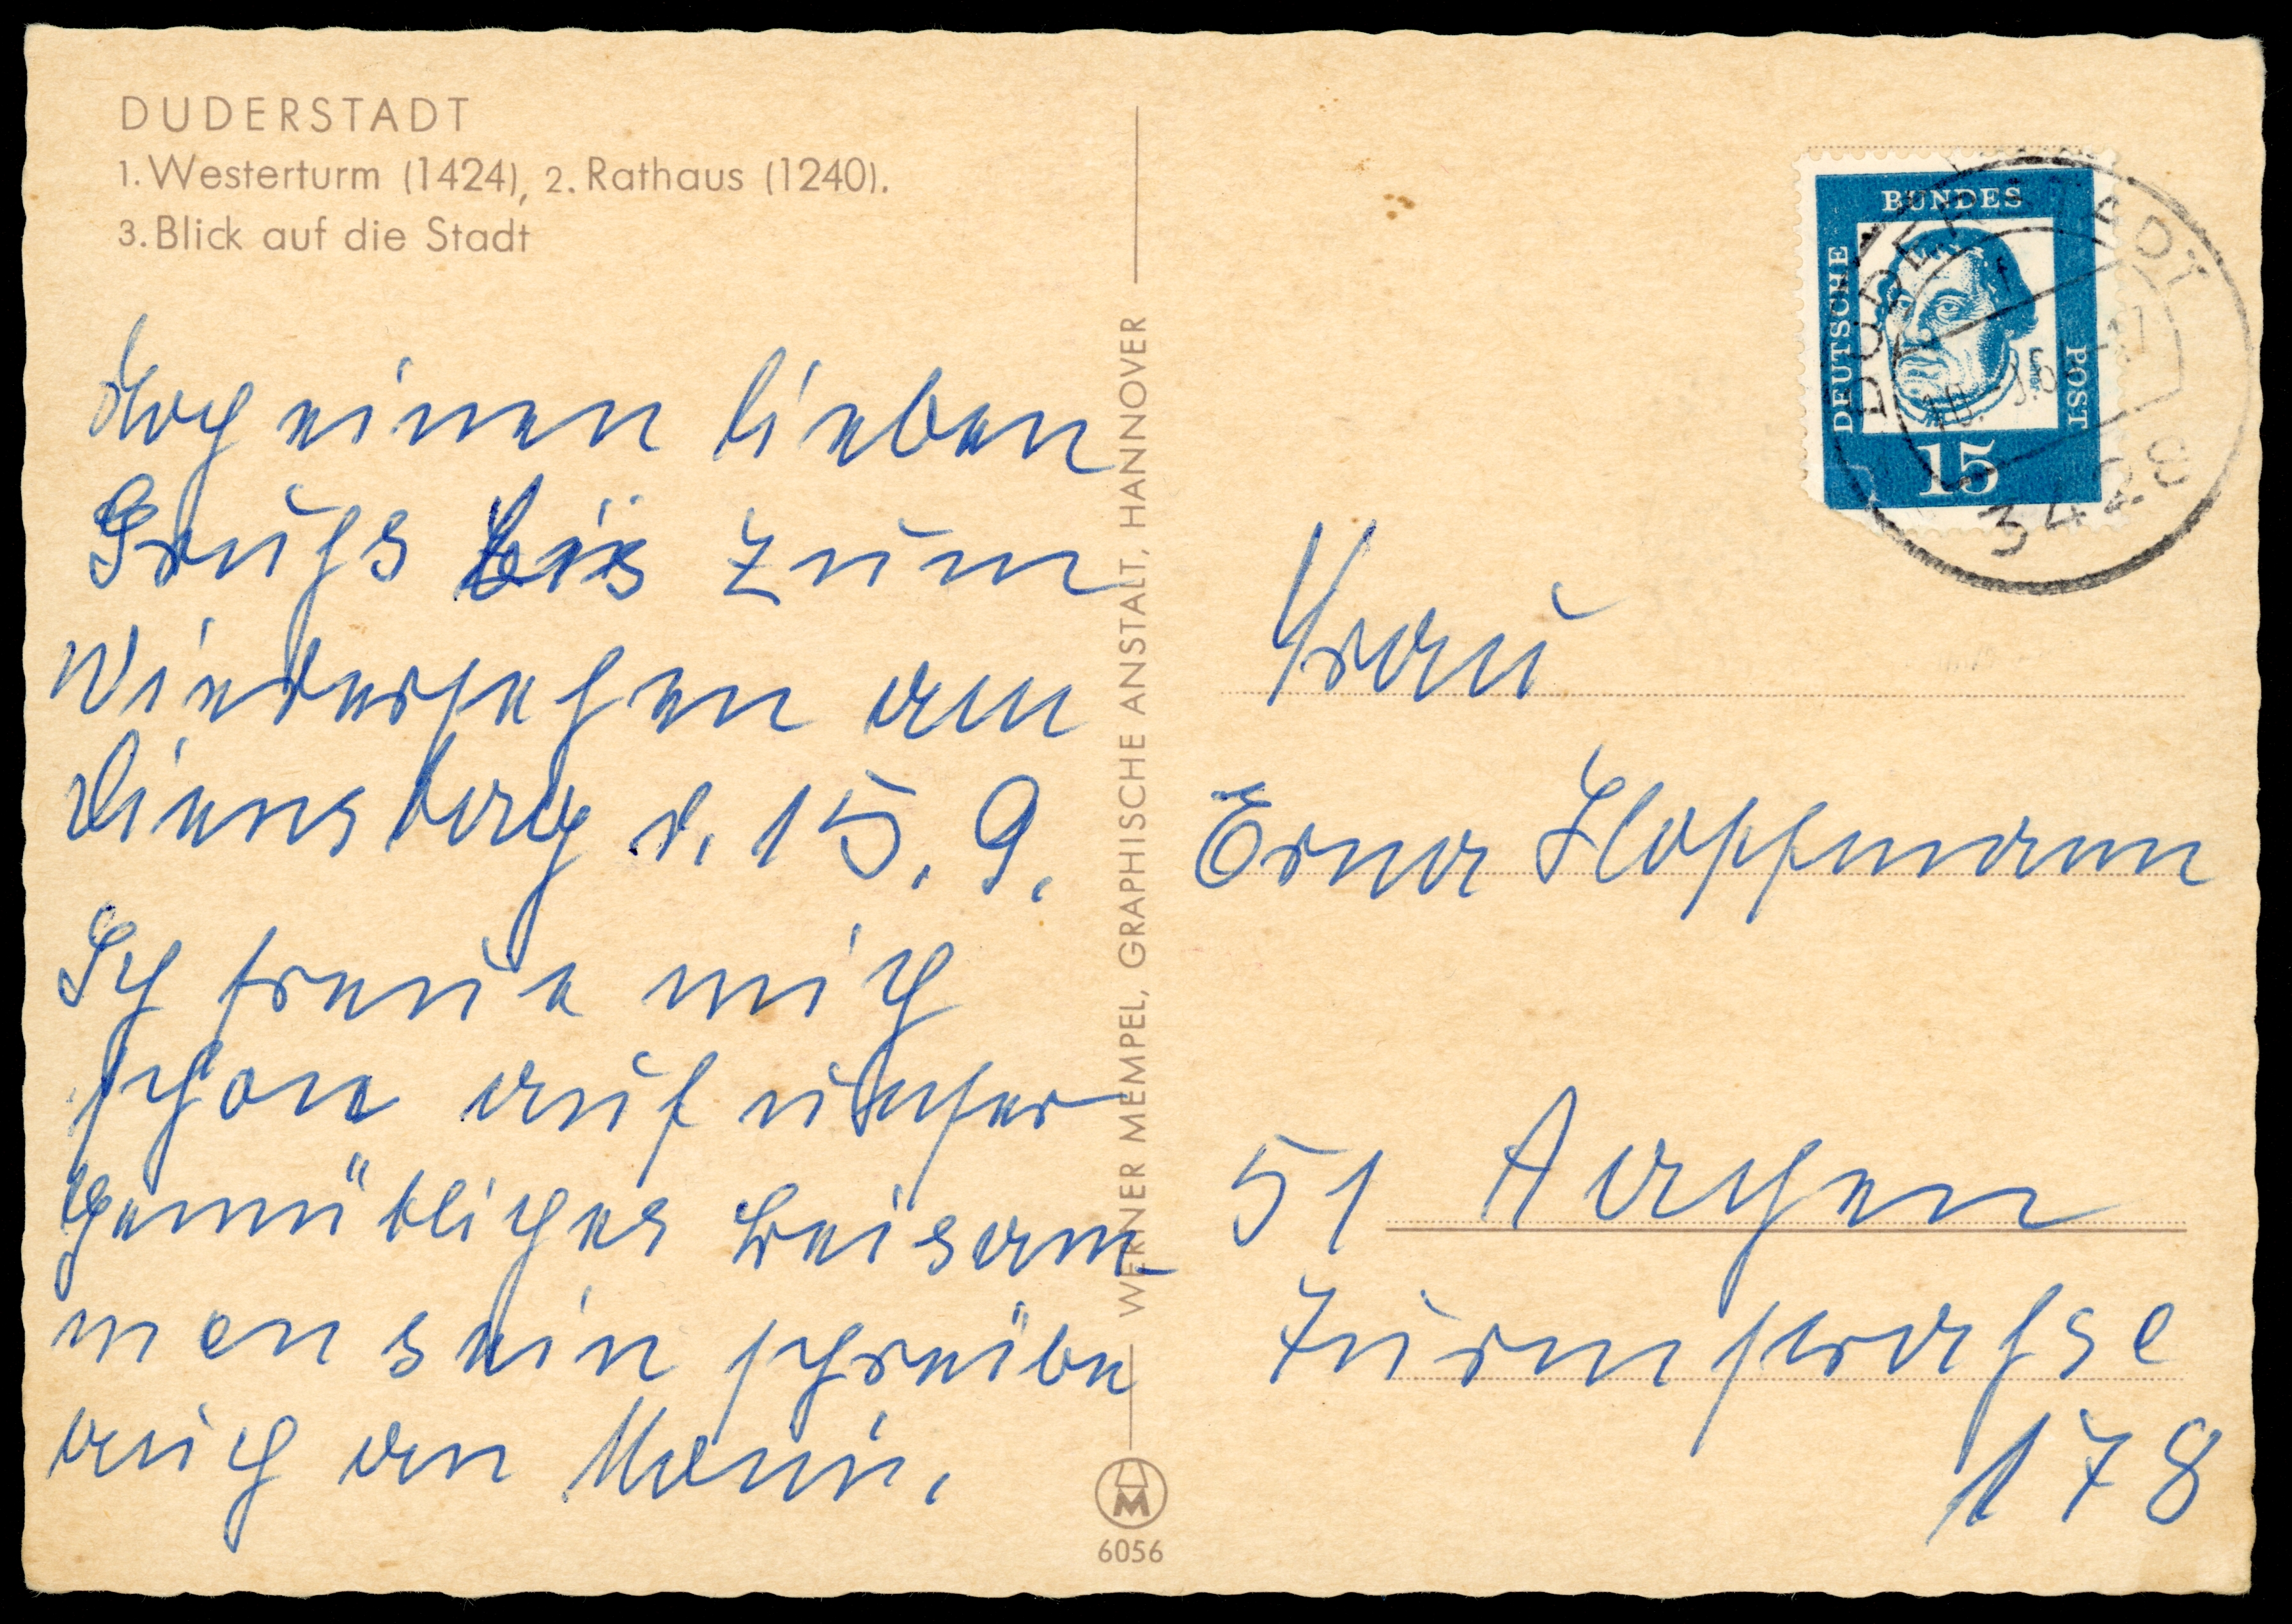 DUDERSTADT
1. Westerturm (1424), 2. Rathaus (1240).
3. Blick auf die Stadt
Noch einen lieben
Gruhs bis zum
Wiedersehen am
Dienstag d. 15. 9.
Ich freue mich
schon auf unser
gemütliches beisam-
mensein schreibe
auch an
WERNER MEMPEL, GRAPHISCHE ANSTALT, HANNOVER
M
6056
BUNDES
DEUTSCHE
POST
15
DUDERSTADT
3428
Frau
Erna Hoffmann
51 Aachen
Turmstrahse
178